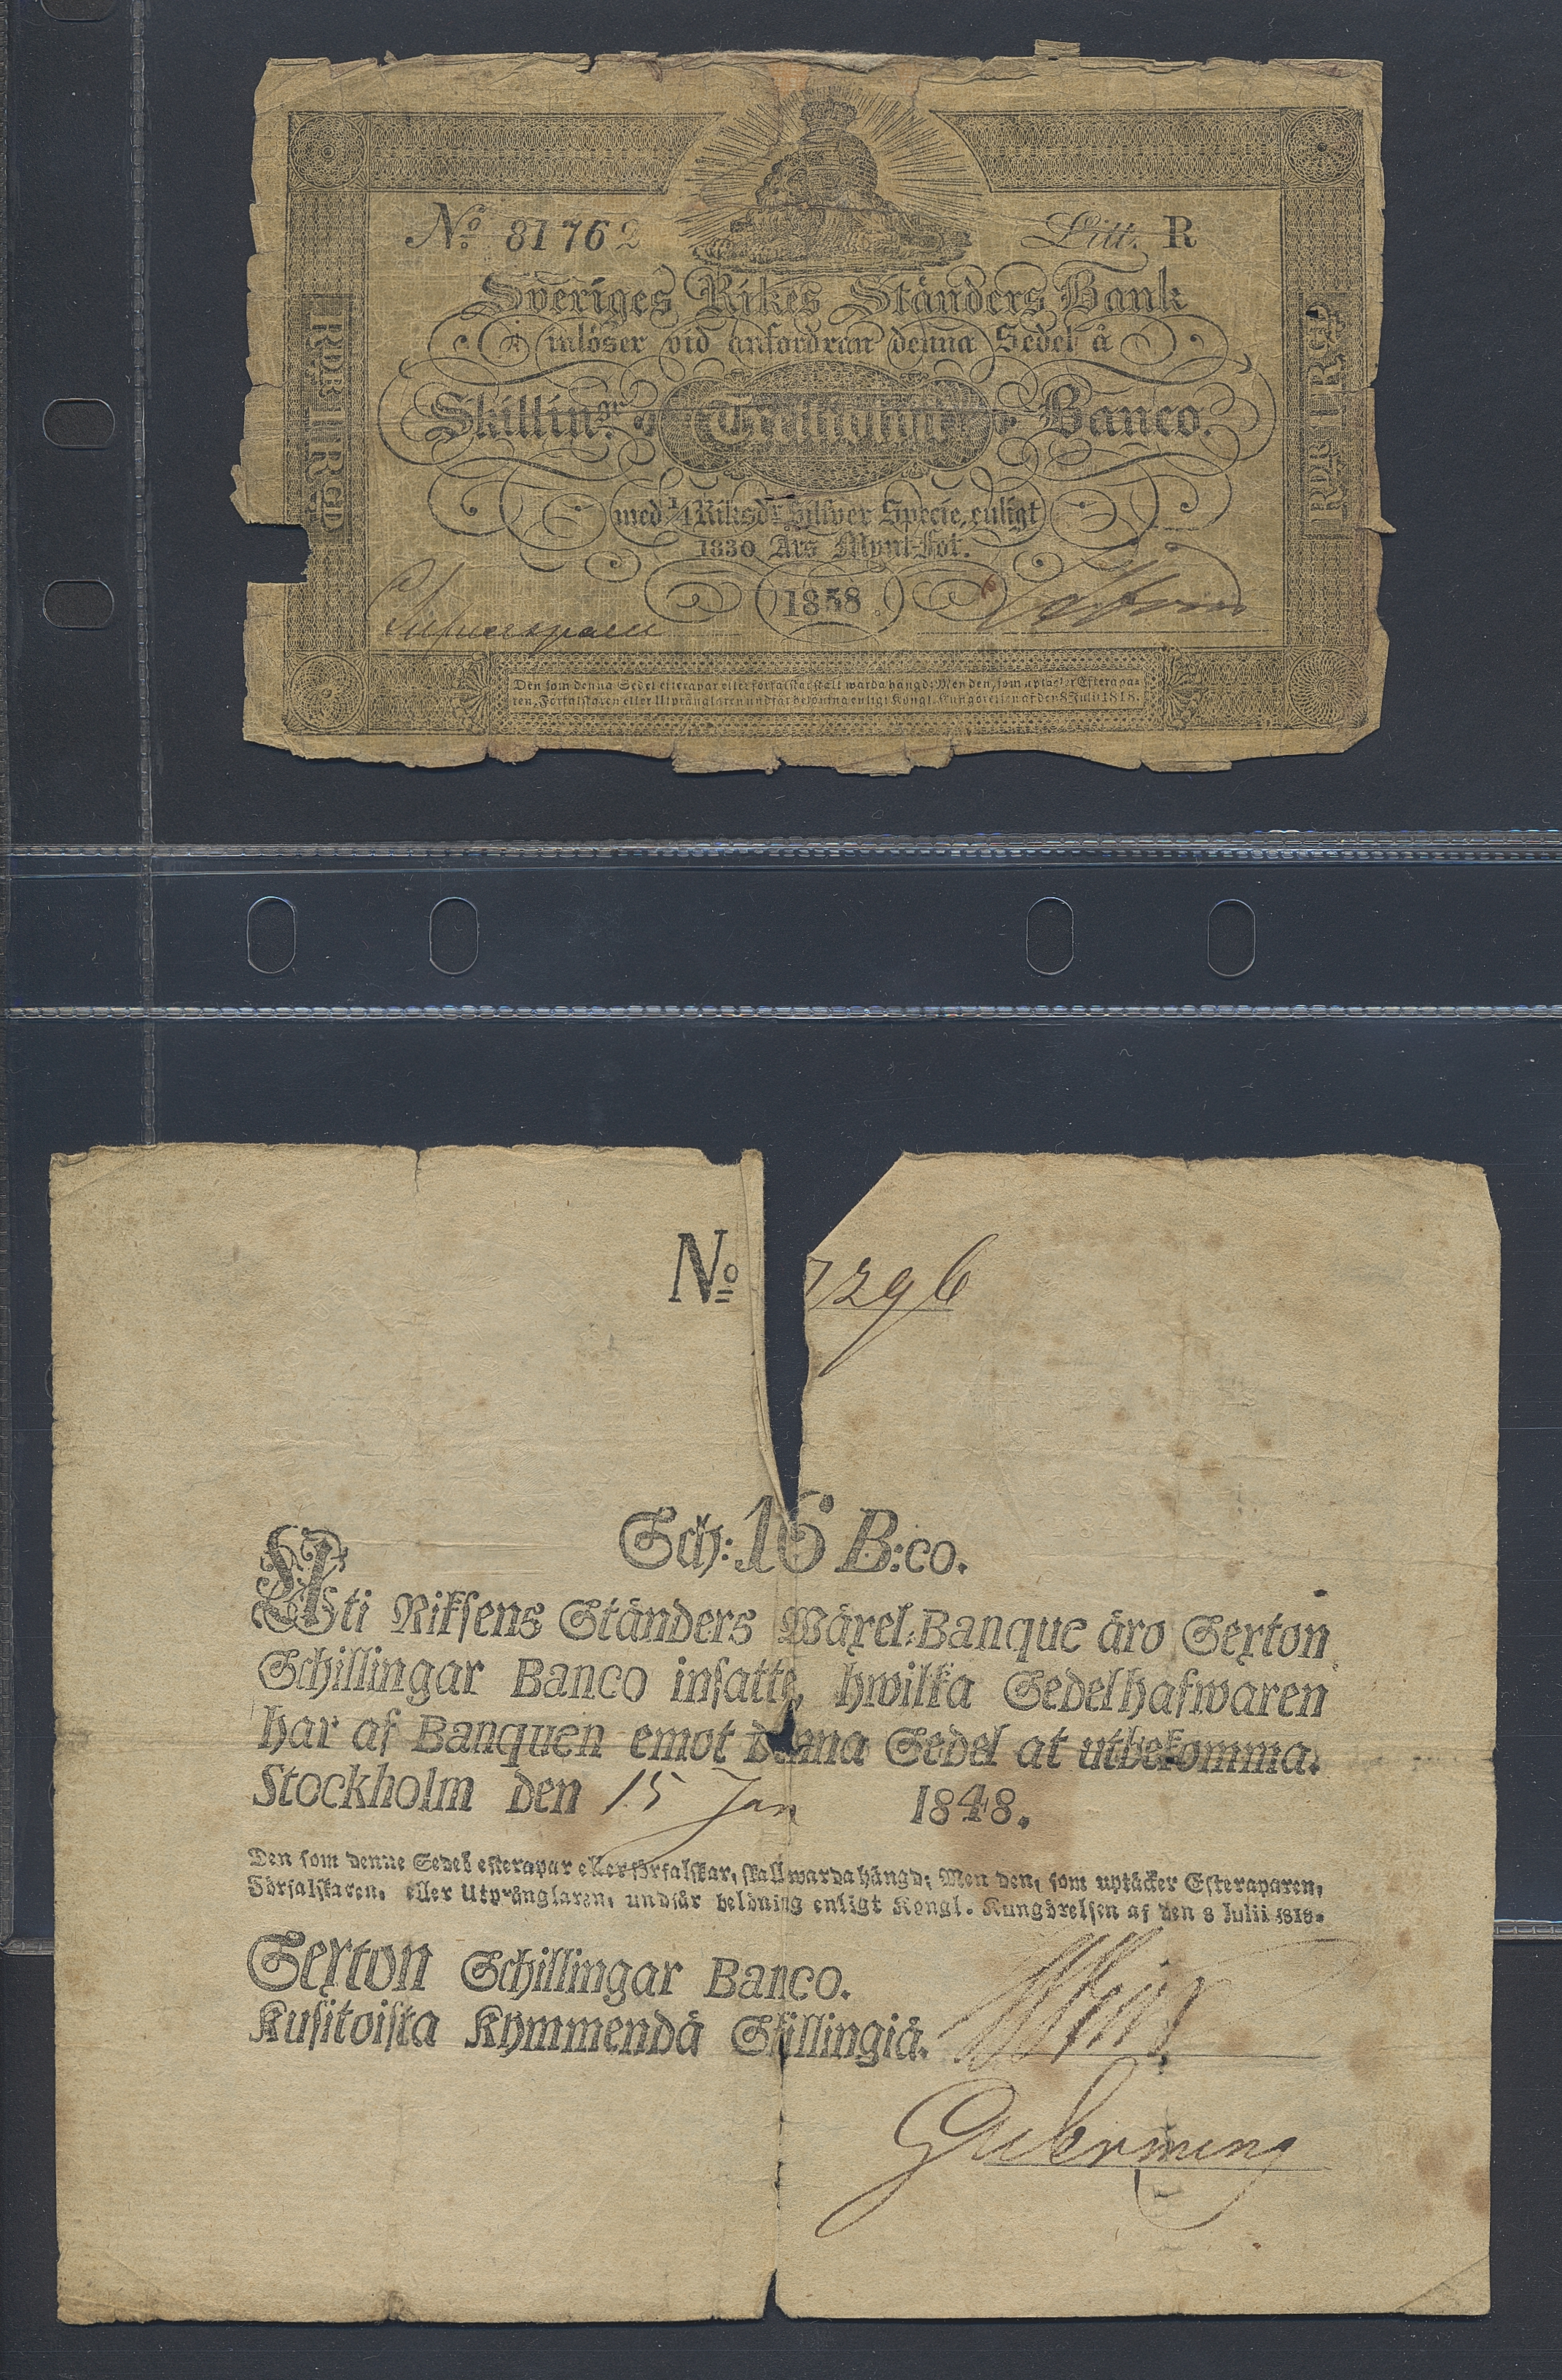 No 81762 Litt. R
Sveriges Rikes Ständers Bank
inlöser vid anfordran denna Sedel à
Skillin:gr Banco.
med ¼ Riksd:r Silfver Specie, enligt
1830 Års Mynt-fot.
1858
RDR I RGD
RDR I RGD
Den som denna Sedel efterapar eller förfalskar skall warda hängd; Men den, som uptäcker Efterapa-
ren, Förfalskaren eller Utprånglaren undfår belöning enligt Kongl. Kungörelsen af den 8 Julii 1818.
No 7296
Sch: 16 B:co.
Uti Riksens Ständers Wäxel-Banque äro Sexton
Schillingar Banco insatte, hwilka Sedelhafwaren
har af Banquen emot denna Sedel at utbekomma.
Stockholm den 15 Jan 1848.
Den som denne Sedel efterapar eller förfalskar, skall warda hängd; Men den, som uptäcker Efteraparen,
Förfalskaren, eller Utprånglaren, undfår belöning enligt Kongl. Kungörelsen af den 8 Julii 1818.
Sexton Schillingar Banco.
Kusitoista Kymmendä Skillingiä.